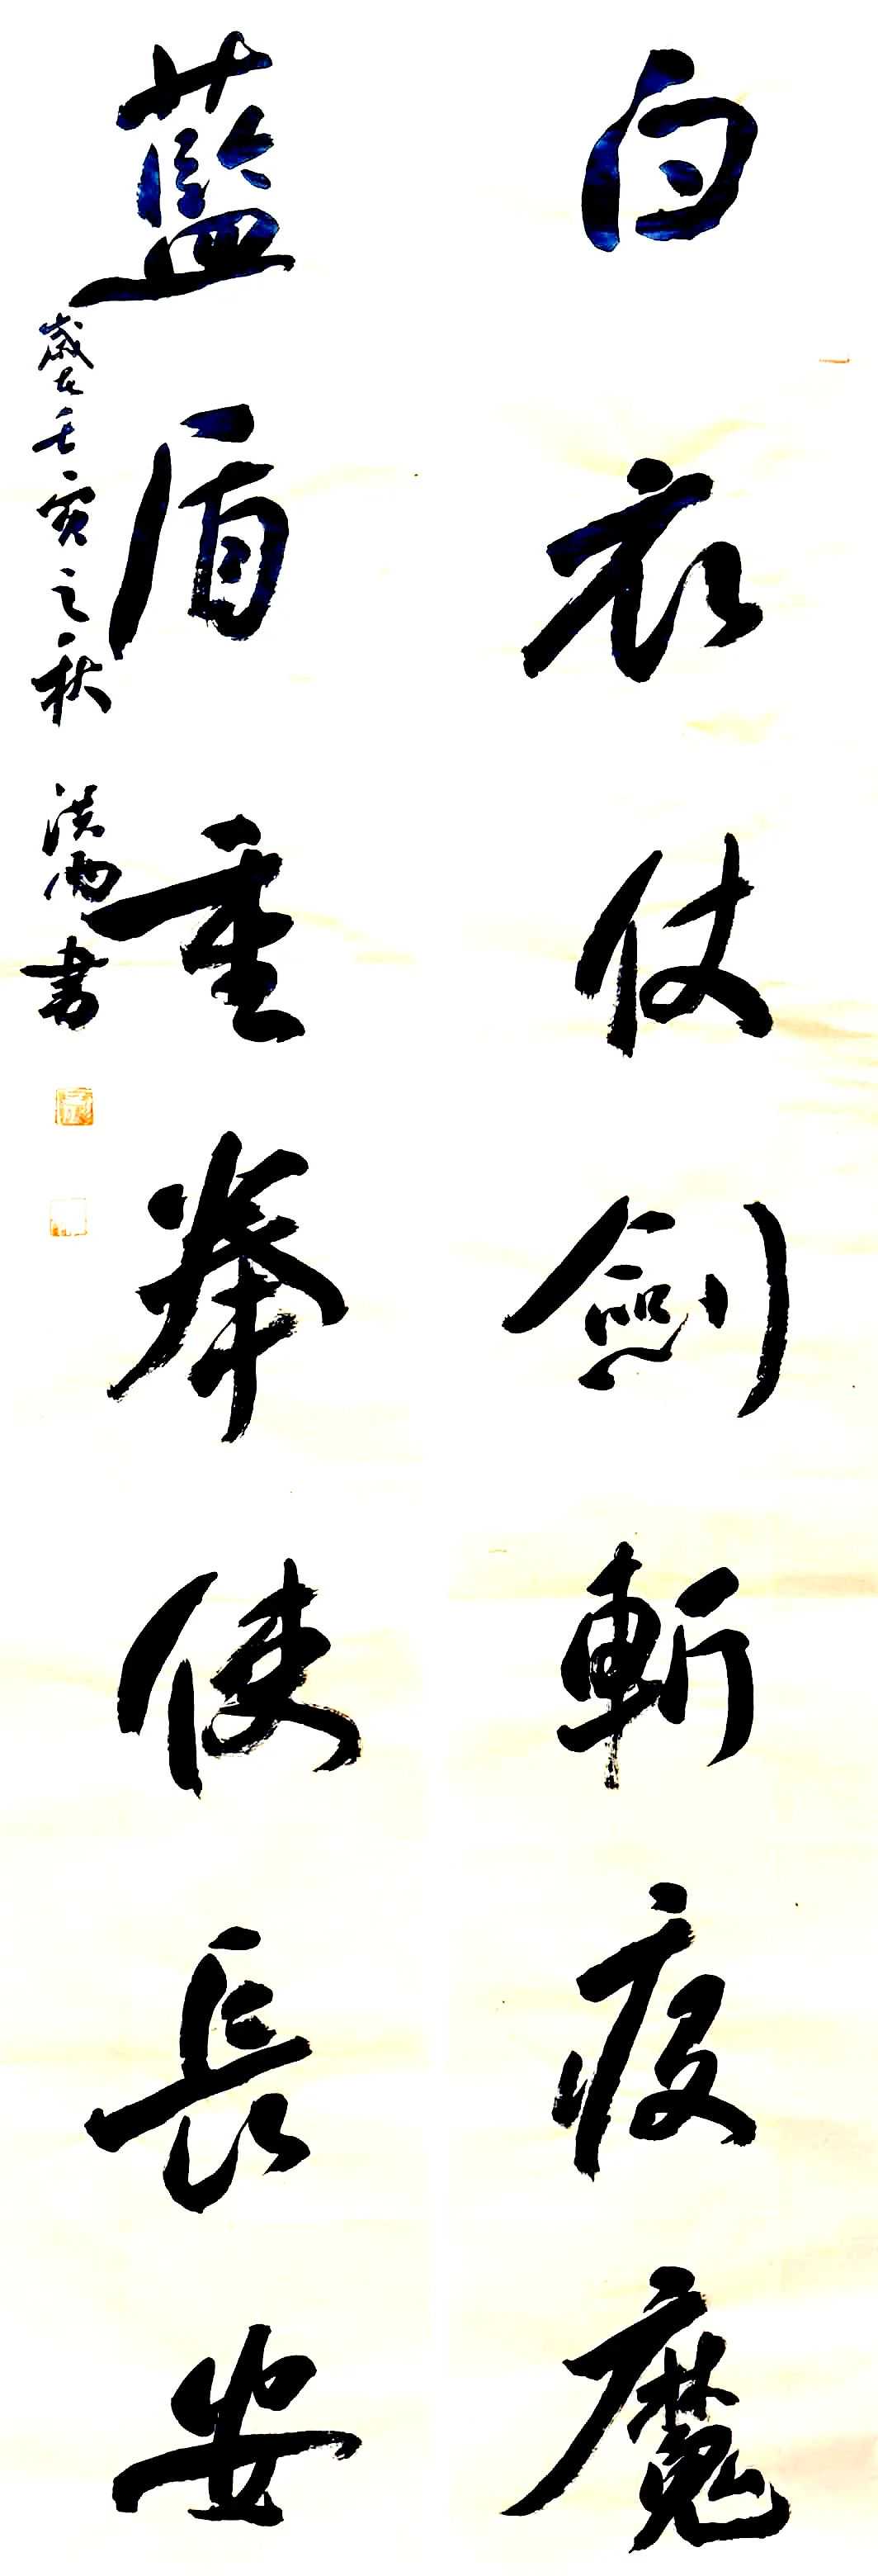 白衣仗劍斬疫魔
藍盾重拳使長安
歲在壬寅之秋 洪雨書